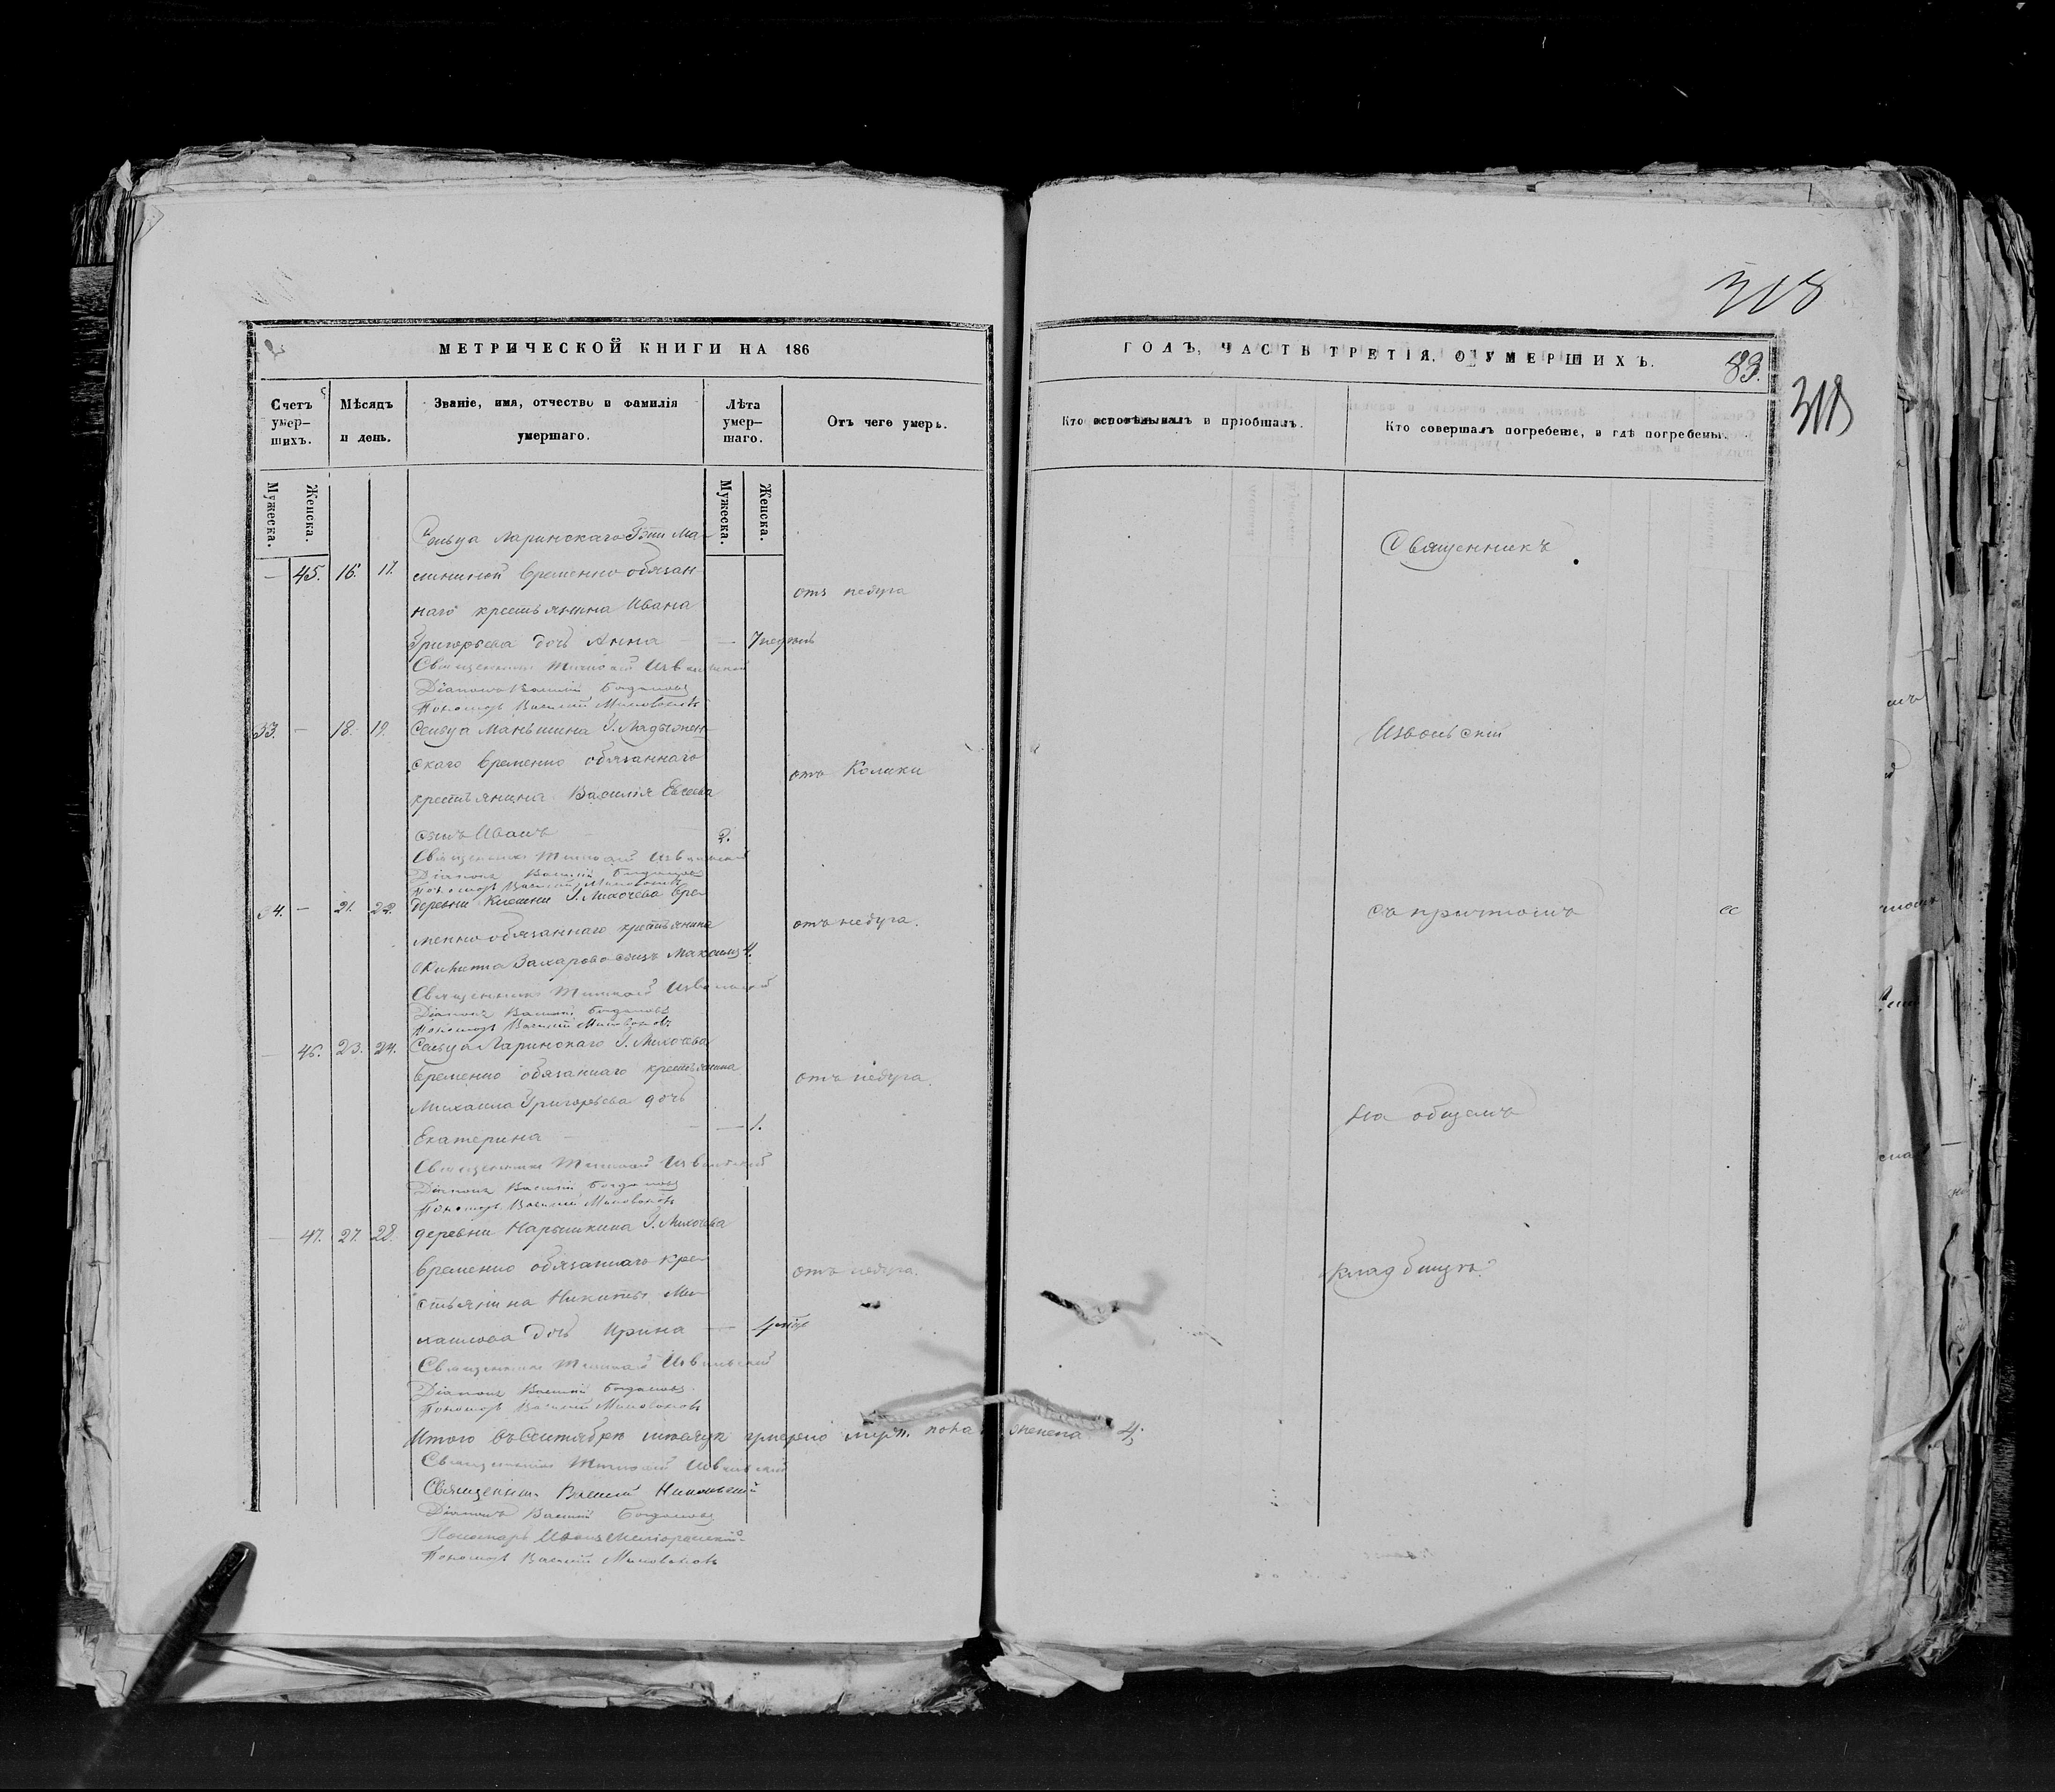 318
МЕТРИЧЕСКОЙ КНИГИ НА 186
ГОДЪ, ЧАСТЬ ТРЕТІЯ, О УМЕРШИХЪ.
83.
318
Счетъ умер-шихъ.
Мѣсяцъ и день.
Званіе, имя, отчество и фамилія умершаго.
Лѣта умер-шаго.
Отъ чего умеръ.
Кто исповѣдывалъ и пріобщалъ.
Кто совершалъ погребеніе, и гдѣ погребены.
Мужеска.
Женска.
Мужеска.
Женска.
Сельца Ларинскаго
— 45. 16. 17. временно обязан-
наго крестьянина Ивана
отъ недуга
Григорьева дочь Анна — 7 недѣль
Священникъ Тимофей Извольскій
Діаконъ Василій Богдановъ
Пономарь Василій Миловановъ
33. — 18. 19. Сельца Маньшина Г. Ладыжен-
скаго временно обязаннаго
отъ Колики
крестьянина Василія Евсеева
сынъ Иванъ 2.
Священникъ Тимофей Извольскій
Діаконъ Василій Богдановъ
Пономарь Василій Миловановъ
34. — 21. 22. деревни Г. Лихачева вре-
менно обязаннаго крестьянина
отъ недуга.
Никиты Захарова сынъ Максимъ 4.
Священникъ Тимофей Извольскій
Діаконъ Василій Богдановъ
Пономарь Василій Миловановъ
— 46. 23. 24. Сельца Ларинскаго Г. Лихачева
временно обязаннаго крестьянина
отъ недуга.
Михаила Григорьева дочь
Екатерина — — 1.
Священникъ Тимофей Извольскій
Діаконъ Василій Богдановъ
Пономарь Василій Миловановъ
— 47. 27. 28. деревни Нарышкина Г. Лихачева
временно обязаннаго кре-
отъ недуга.
стьянина Никиты Ми-
хаилова дочь Ирина —
Священникъ Тимофей Извольскій
Діаконъ Василій Богдановъ
Пономарь Василій Миловановъ
Итого въ Сентябрѣ мѣсяцѣ умерло
4;
Священникъ Тимофей Извольскій
Священникъ Василій Никольскій
Діаконъ Василій Богдановъ
Пономарь Иванъ Меліоранскій
Пономарь Василій Миловановъ
Священникъ
Извольскій
съ причтомъ
на общемъ
кладбищѣ